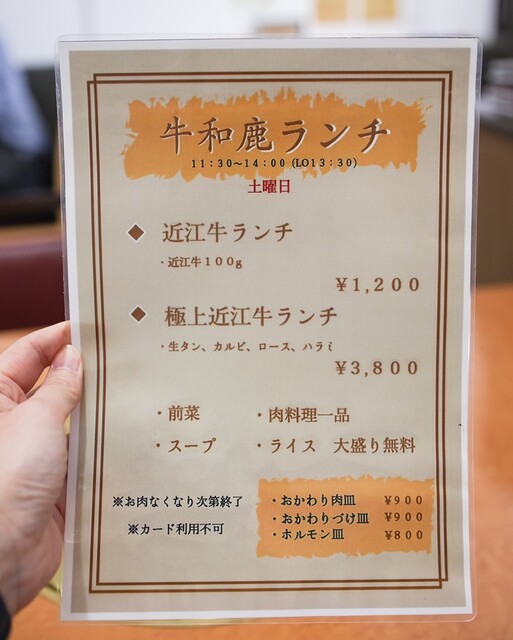 牛和鹿ランチ
11:30～14:00 (LO13:30)
土曜日
◆ 近江牛ランチ
・近江牛100g
￥1,200
◆ 極上近江牛ランチ
・生タン、カルビ、ロース、ハラミ
￥3,800
・前菜 ・肉料理一品
・スープ ・ライス 大盛り無料
※お肉なくなり次第終了
※カード利用不可
・おかわり肉皿 ￥900
・おかわりづけ皿 ￥900
・ホルモン皿 ￥800